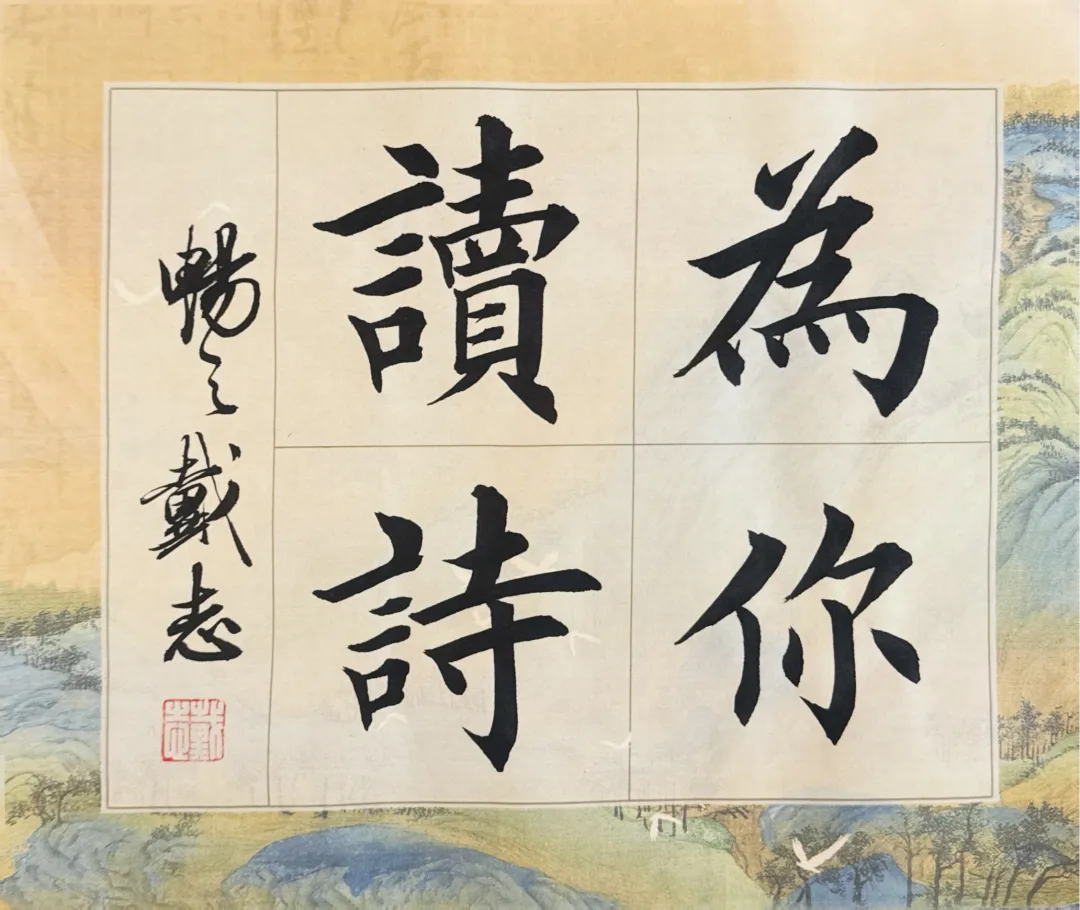 為你
讀詩
暢之戴志
戴志